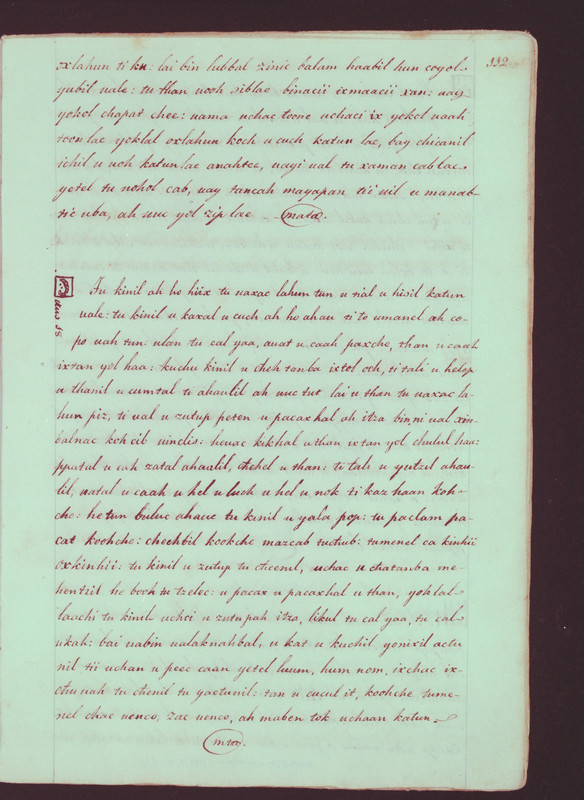 332.
oxlahun ti ku: lai bin lubbal zinic balam haabil hun coyol-
yubil uale: tu than uooh siblae binacii ixmaacii xan: uay
yokol chapat chee: uama uchac toone uchaci ix yokol uaali
toon lae yoklal oxlahun koch u cuch katun lae, bay chicanil
ichil u uoh katun lae anahtee, uayi ual tu xaman cab lae
yetel tu nohol cab, uay tancah mayapan tii uil u manab-
tic uba, ah uuc yol zip lae
Tu kinil ah ho hiix tu uaxac lahun tun u zial u hiɔil katun
uale: tu kinil u kaxal u cuch ah ho ahau zito umanel ah co-
po uah tun: ulom tu cal yaa, auat u caah paxche, than u caah
ixtan yol haa: kuchu kinil u cheh tanba ixtol och, ti tali u helop
u thanil u cumtal ti ahaulil ah uuc tut lai u than tu uaxac la-
hun piz, ti ual u zutup peten u pacaxhal ah itza bin, ni ual xin-
balnac koh cib uinclis: heuac kikhal u than ixtan yol chulul haa:
ppatal u cah zatal ahaulil, chehel u than: ti tali u yutzil ahau-
lil, uatal u caah u hel u luch u hel u nok ti kaz haan koh-
che: he tun buluc ahaue tu kinil u yala pop: tu paclam pa-
cat koohche: chechbil kookche mazcab tuchub: tumenel ca kinhii
oxkinhii: tu kinil u zutup tu chemil, uchac u chatanba me-
hentzil he booh tu tzelec: u pacax u pacaxhal u than, yoklal
laachi tu kinil uchci u zutupah itza, likul tu cal yaa, tu cal
ukah: bai uabin ualaknahbal, u kat u kuchil, yonixil actu
nil tii uchan u pecc caan yetel luum, hum nom, ixchac ix-
chuuah tu chenil tu yactunil: tan u cucul it, koohche tume-
nel chac uenco, zac uenco, ah maben tok uchaan katun